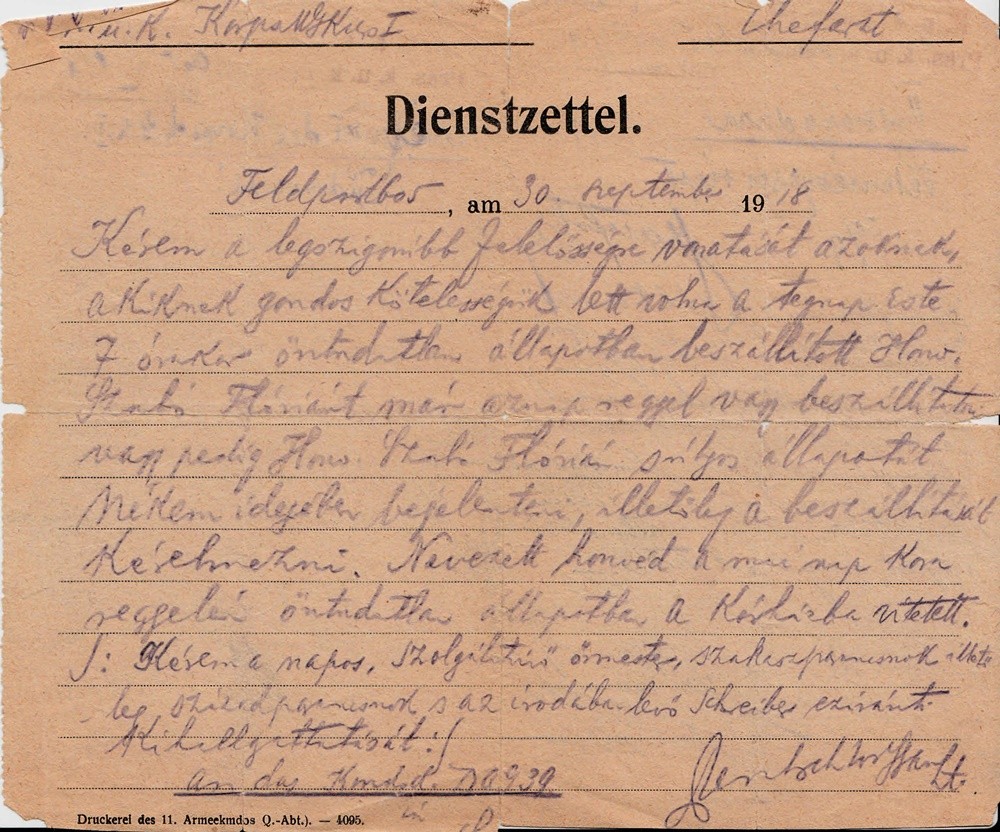 u. K. Korps Kurs I
Chefarzt
Dienstzettel.
Feldpostbos, am 30. szeptember 1918
Kérem a legszigorúbb felelősségre vonatását azoknak,
akiknek gondos kötelességük lett volna a tegnap este
7 órakor öntudatlan állapotban beszállított Honv.
Szabó Flóriánt már aznap reggel vagy beszállítatni
vagy pedig Honv. Szabó Flórián súlyos állapotát
nékem idejében bejelenteni, illetőleg a beszállítását
kérelmezni. Nevezett honvéd a mai nap kora
reggelén öntudatlan állapotban a kórházba vitetett.
/: Kérem a napos, szolgálattévő őrmester, szakaszparancsnok illető
leg századparancsnok s az irodában levő Schreiber eziránti
kihallgattatását :/
an das Kmdo d.
Druckerei des 11. Armeekmdos Q.-Abt.). — 4095.